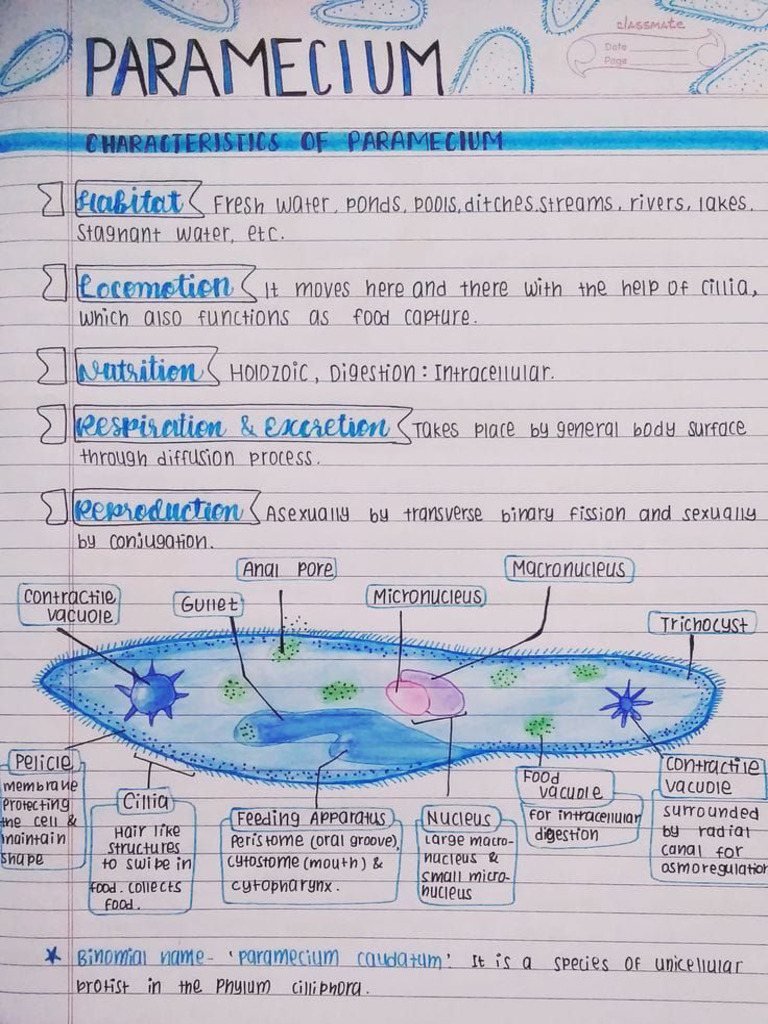 classmate
Date
Page
PARAMECIUM
CHARACTERISTICS OF PARAMECIUM
Habitat Fresh water, ponds, pools, ditches, streams, rivers, lakes,
stagnant water, etc.
Locomotion It moves here and there with the help of cillia,
which also functions as food capture.
Nutrition Holozoic, Digestion : Intracellular.
Respiration & Excretion Takes place by general body surface
through diffusion process.
Reproduction Asexually by transverse binary fission and sexually
by conjugation.
Anal pore
Macronucleus
Contractile
vacuole
Gullet
Micronucleus
Trichocyst
Pelicle
membrane
protecting
the cell &
maintain
shape
Cillia
Hair like
structures
to swipe in
food. collects
food.
Feeding Apparatus
Peristome (oral groove),
cytostome (mouth) &
cytopharynx.
Nucleus
Large macro-
nucleus &
small micro-
nucleus
Food
vacuole
for intracellular
digestion
Contractile
vacuole
surrounded
by radial
canal for
osmoregulation
★ Binomial name- 'paramecium caudatum'. It is a species of unicellular
protist in the phylum cilliphora.